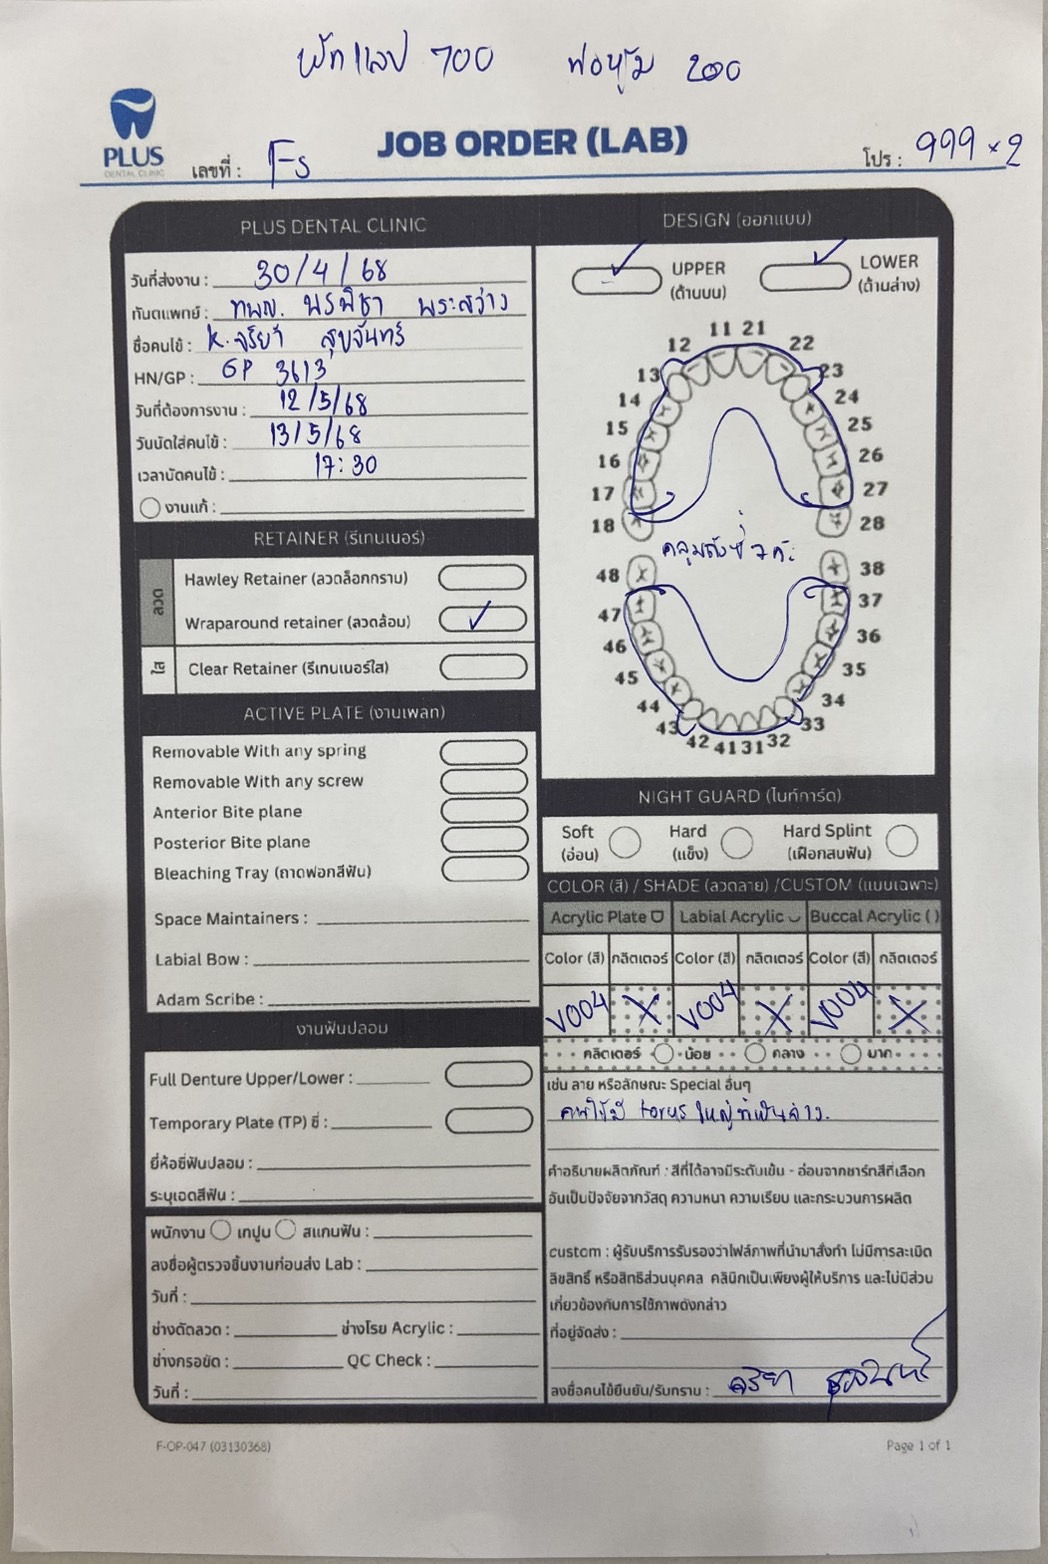 พักแลป 700 ท่อหุ้ม 200
PLUS
DENTAL CLINIC
เลขที่ : Fs
JOB ORDER (LAB)
โปร : 999 × 2
PLUS DENTAL CLINIC
วันที่ส่งงาน : 30/4/68
ทันตแพทย์ : ทพญ. พรพิชา พระสว่าง
ชื่อคนไข้ : k. จริยา สุขจันทร์
HN/GP : GP 3613
วันที่ต้องการงาน : 12/5/68
วันนัดใส่คนไข้ : 13/5/68
เวลานัดคนไข้ : 17:30
งานแก้ :
RETAINER (รีเทนเนอร์)
ลวด
Hawley Retainer (ลวดล็อกกราม)
Wraparound retainer (ลวดล้อม) ✓
ใส
Clear Retainer (รีเทนเนอร์ใส)
ACTIVE PLATE (งานเพลท)
Removable With any spring
Removable With any screw
Anterior Bite plane
Posterior Bite plane
Bleaching Tray (ถาดฟอกสีฟัน)
Space Maintainers :
Labial Bow :
Adam Scribe :
งานฟันปลอม
Full Denture Upper/Lower :
Temporary Plate (TP) ซี่ :
ยี่ห้อซี่ฟันปลอม :
ระบุเฉดสีฟัน :
พนักงาน เทปูน สแกนฟัน :
ลงชื่อผู้ตรวจชิ้นงานก่อนส่ง Lab :
วันที่ :
ช่างดัดลวด : ช่างโรย Acrylic :
ช่างกรอขัด : QC Check :
วันที่ :
DESIGN (ออกแบบ)
✓ UPPER (ด้านบน) ✓ LOWER (ด้านล่าง)
11 21
12 22
13 23
14 24
15 25
16 26
17 27
18 28
คลุมถึงซี่ 7 ค่ะ
48 38
47 37
46 36
45 35
44 34
43 33
42 41 31 32
NIGHT GUARD (ไนท์การ์ด)
Soft (อ่อน) Hard (แข็ง) Hard Splint (เฝือกสบฟัน)
COLOR (สี) / SHADE (ลวดลาย) /CUSTOM (แบบเฉพาะ)
Acrylic Plate Labial Acrylic Buccal Acrylic ( )
Color (สี) กลิตเตอร์ Color (สี) กลิตเตอร์ Color (สี) กลิตเตอร์
V004 X V004 X V004 X
กลิตเตอร์ น้อย กลาง มาก
เช่น ลาย หรือลักษณะ Special อื่นๆ
คนไข้มี torus ใหญ่ที่ฟันล่าง.
คำอธิบายผลิตภัณฑ์ : สีที่ได้อาจมีระดับเข้ม - อ่อนจากชาร์ทสีที่เลือก
อันเป็นปัจจัยจากวัสดุ ความหนา ความเรียบ และกระบวนการผลิต
custom : ผู้รับบริการรับรองว่าไฟล์ภาพที่นำมาสั่งทำ ไม่มีการละเมิด
ลิขสิทธิ์ หรือสิทธิส่วนบุคคล คลินิกเป็นเพียงผู้ให้บริการ และไม่มีส่วน
เกี่ยวข้องกับการใช้ภาพดังกล่าว
ที่อยู่จัดส่ง :
ลงชื่อคนไข้ยืนยัน/รับทราบ : จริยา สุขจันทร์
F-OP-047 (03130368)
Page 1 of 1